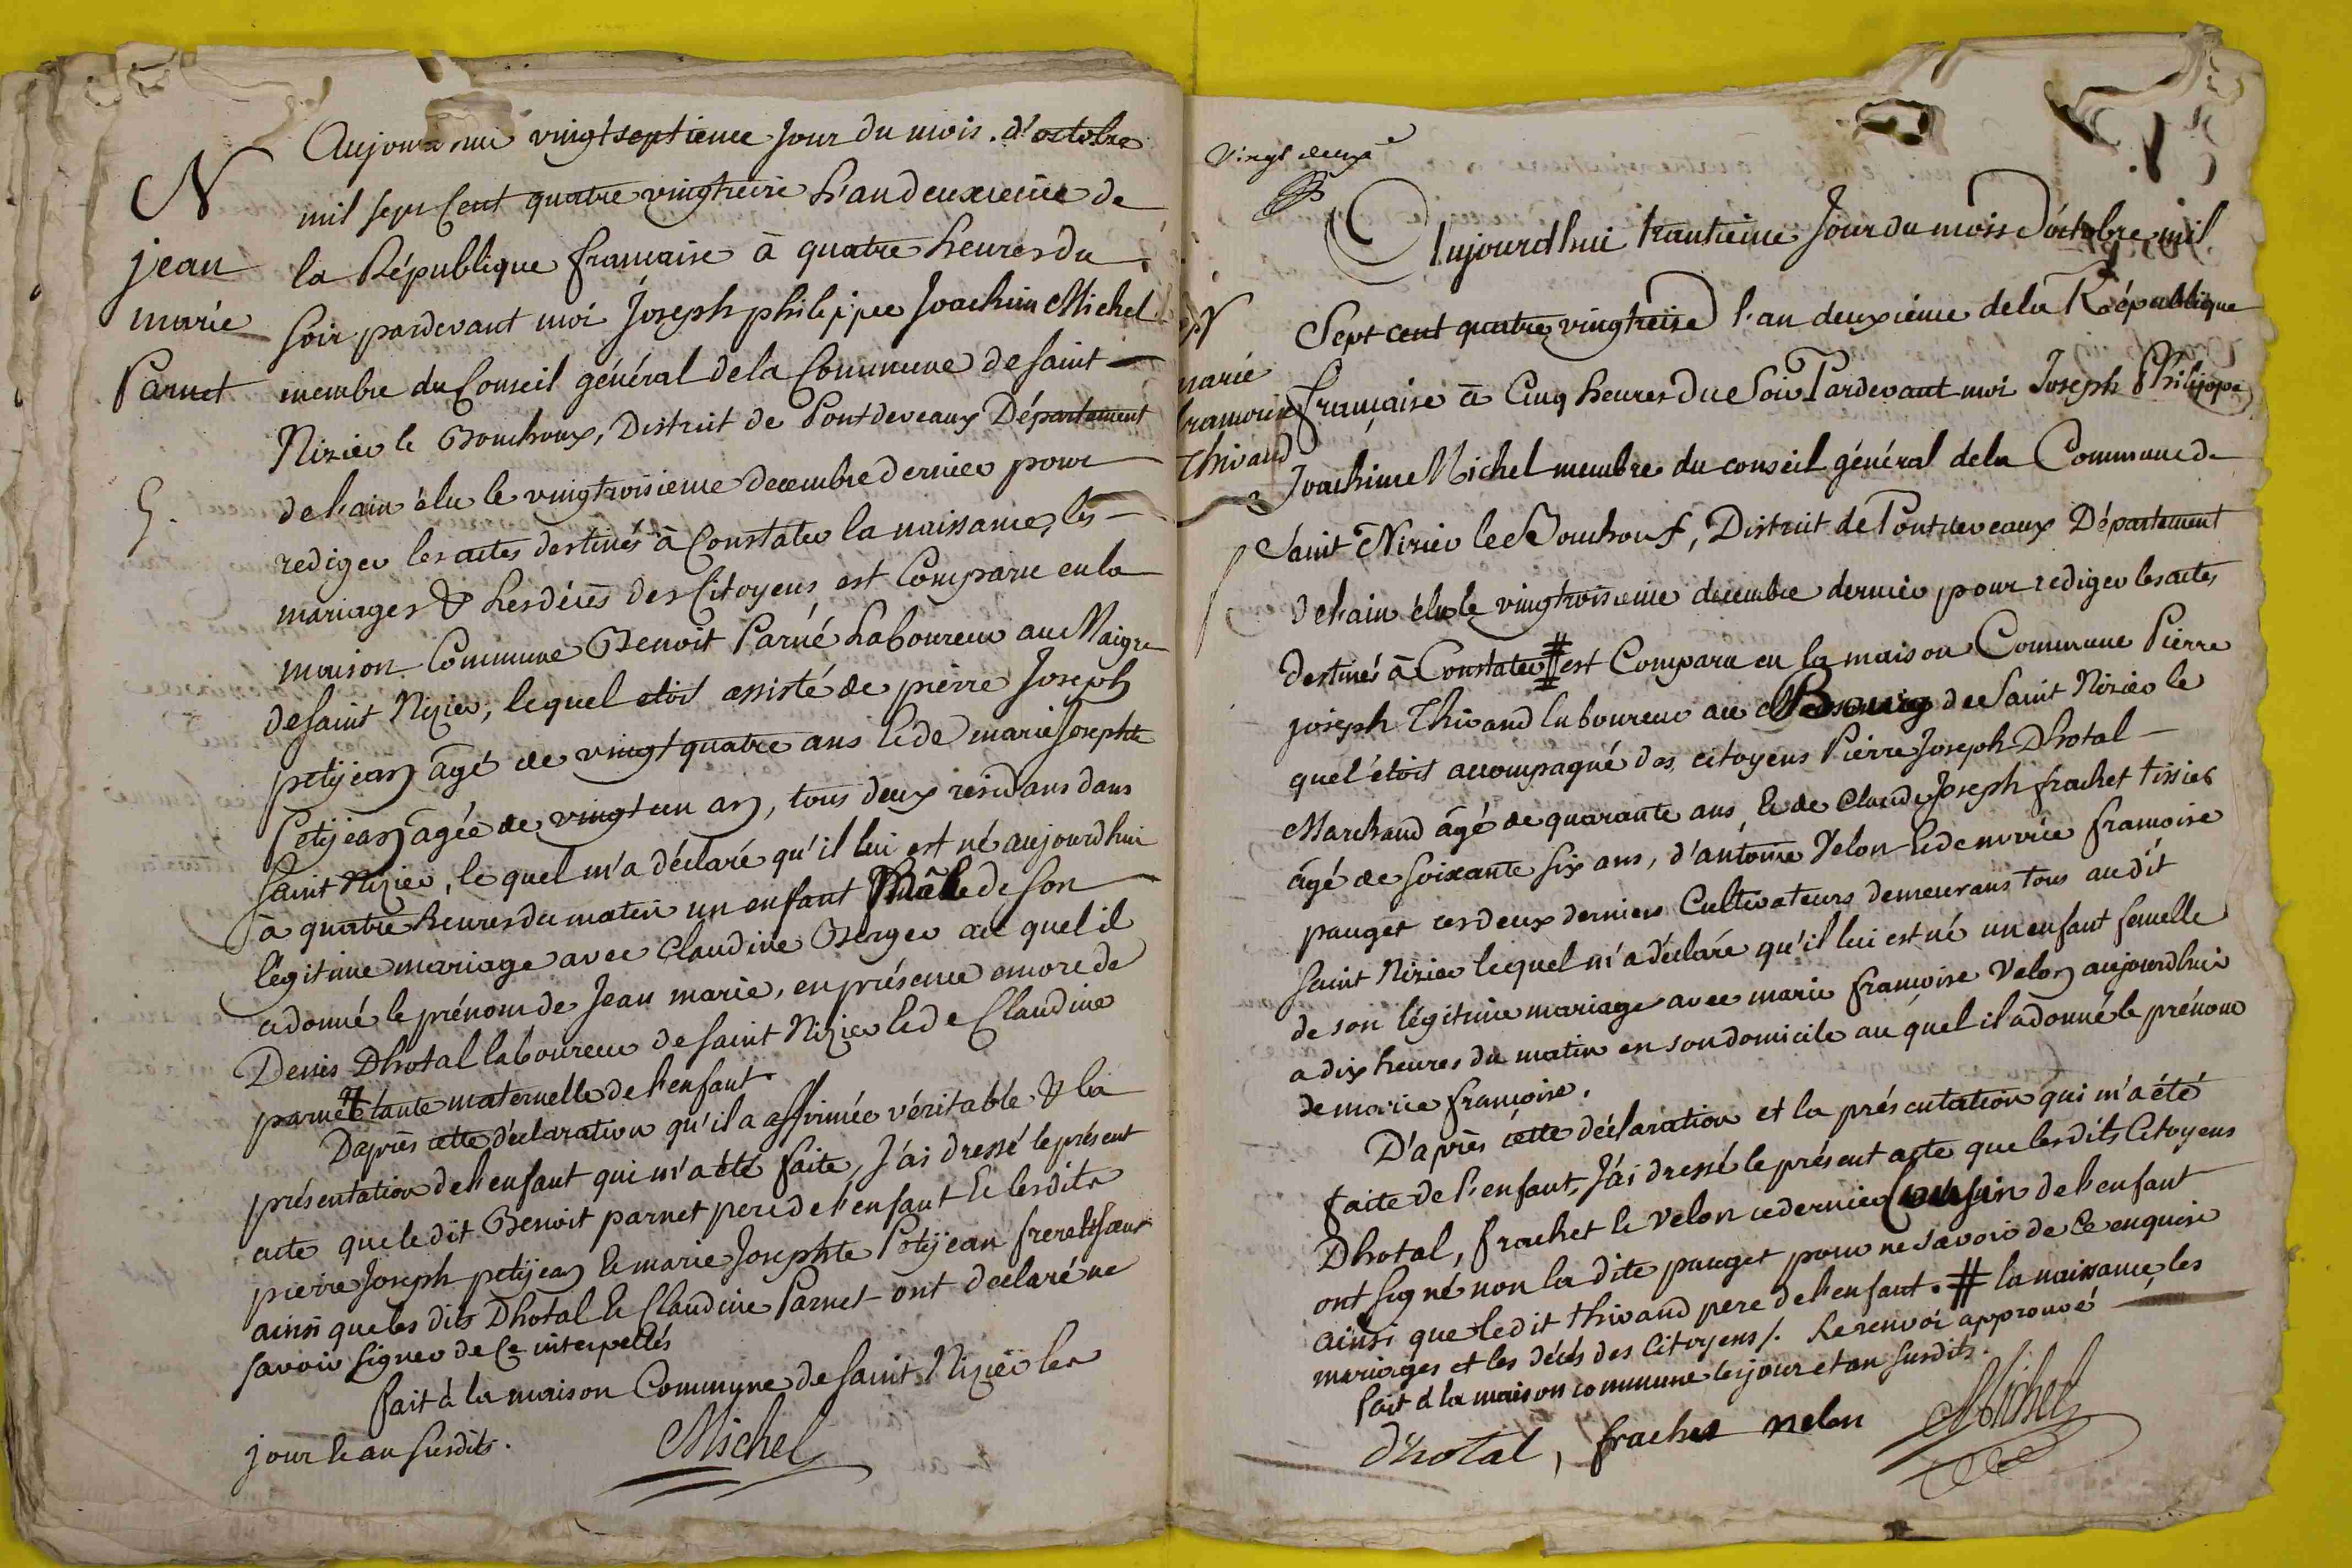 N
jean
marie
Parnet
5.
Aujourd'hui vingtseptieme Jour du mois d'octobre
mil sept Cent quatre vingtreize L'an deuxieme de
la République francaise à quatre heures du
soir pardevant moi Joseph philippe Joachim Michel
membre du Conseil général de la Commune de saint
Nizier le Bouchoux, District de Pontdevaux Département
de l'ain élu le vingtroisieme decembre dernier pour
rediger les actes destinés à Constater la naissance, les
mariages & les décès des Citoyens, est Comparu en la
maison Commune Benoit Parné Laboureur au Maigre
de saint Nizier, lequel etoit assisté de pierre Joseph
petijean âgé de vingt quatre ans & de marie Josephte
Petijean âgée de vingt un an, tous deux résidans dans
saint Nizier, lequel m'a déclaré qu'il lui est né aujourdhui
à quatre heures du matin un enfant Mâle de son
légitime mariage avec Claudine Berger au quel il
a donné le prénom de Jean marie, en présence encore de
Denis Dhotal laboureur de saint Nizier & de Claudine
parnet tante maternelle de l'enfant.
D'après cette déclaration qu'il a affirmée véritable & la
présentation de l'enfant qui m'a été faite, J'ai dressé le présent
acte que le dit Benoit parnet pere de l'enfant & lesdits
pierre Joseph petijean & marie Josephte Petijean frere et soeur
ainsi que les dits Dhotal & Claudine Parnet ont déclaré ne
savoir signer de Ce interpellés
fait à la maison Commune de saint Nizier les
jour & an susdits.
Michel
vingt deuxe
N
marie
francoise
Thivaud
Aujourdhui trantieme Jour du mois d'octobre mil
Sept cent quatre vingtreize l'an deuxiéme de la République
française à Cinq heures du Soir Pardevant moi Joseph Philippe
Joachime Michel membre du conseil général de la Commune de
Saint Nizier le Bouchoux, District de Pontdeveaux Département
de l'ain élu le vingtroisieme decembre dernier pour rediger les actes
destinés à Constater # est Comparu en la maison Commune Pierre
joseph Thivaud laboureur au Bourg de Saint Nizier le
quel étoit accompagné des citoyens Pierre Joseph Dhotal
Marchand âgé de quarante ans, & de Claude Joseph frachet tissier
âgé de soixante six ans, d'antoine Velon & de marie francoise
pauget ces deux derniers Cultivateurs demeurans tous audit
saint Nizier lequel m'a déclaré qu'il lui est né un enfant femelle
de son légitime mariage avec marie françoise Velon aujourdhui
a dix heures du matin en son domicile au quel il a donné le prénom
de marie francoise.
D'après cette déclaration et la présentation qui m'a été
faite de l'enfant, J'ai dressé le présent acte que lesdits Citoyens
Dhotal, frachet & Velon ce dernier Cousin de l'enfant
ont signé non la dite pauget pour ne savoir de Ce enquise
ainsi que ledit thivaud pere de l'enfant. # la naissance, les
mariages et les décès des Citoyens /. Le renvoi approuvé
fait à la maison commune les jour et an susdits.
dhotal, frachet velon Michel